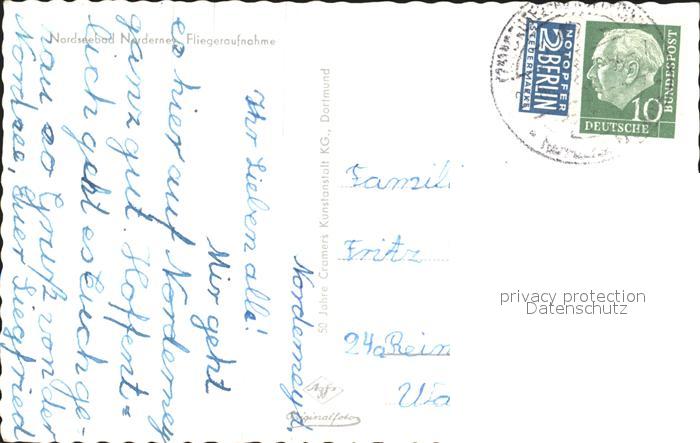 Nordseebad Norderney Fliegeraufnahme
Norderney, d.
Ihr Lieben alle!
Mir geht
es hier auf Norderney
ganz gut. Hoffent=
lich geht es Euch ge-
nau so Gruß von der
Nordsee, Euer Siegfried
50 Jahre Cramers Kunstanstalt KG., Dortmund
Agfa
Originalfoto
Famili
Fritz
24a Rein
NOTOPFER
2 BERLIN
STEUERMARKE
10
DEUTSCHE
BUNDESPOST
privacy protection
Datenschutz